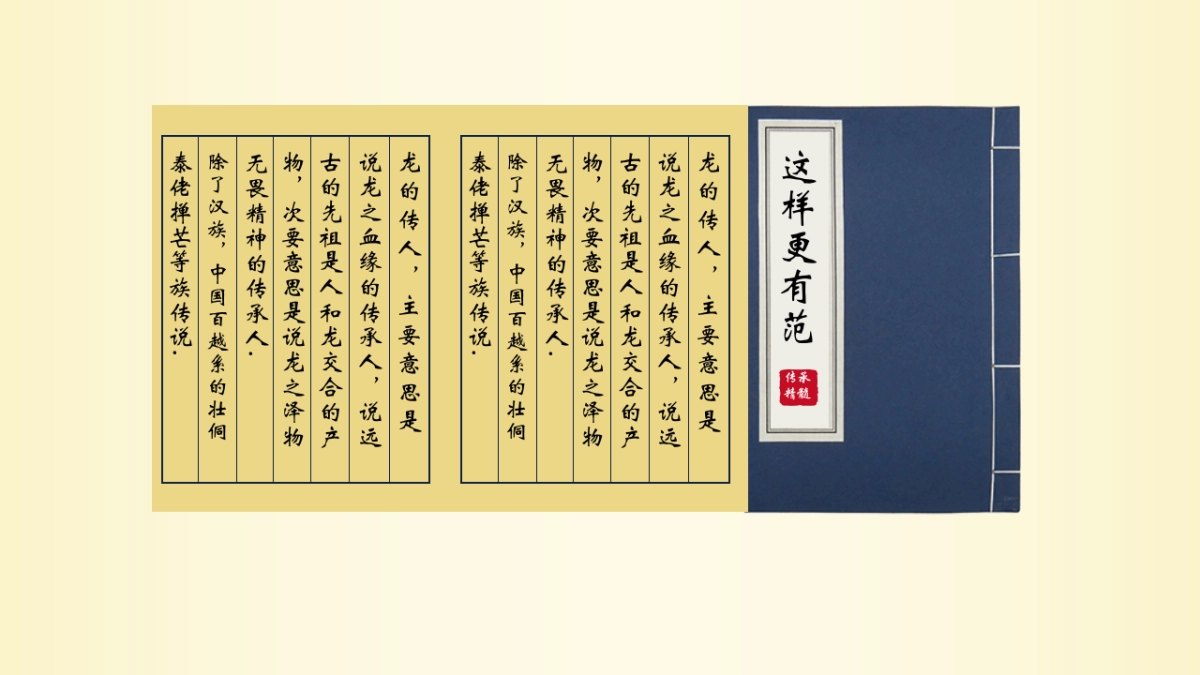 这样更有范
传承
精髓
龙的传人，主要意思是
说龙之血缘的传承人，说远
古的先祖是人和龙交合的产
物，次要意思是说龙之泽物
无畏精神的传承人.
除了汉族，中国百越系的壮侗
泰佬掸芒等族传说.
龙的传人，主要意思是
说龙之血缘的传承人，说远
古的先祖是人和龙交合的产
物，次要意思是说龙之泽物
无畏精神的传承人.
除了汉族，中国百越系的壮侗
泰佬掸芒等族传说.